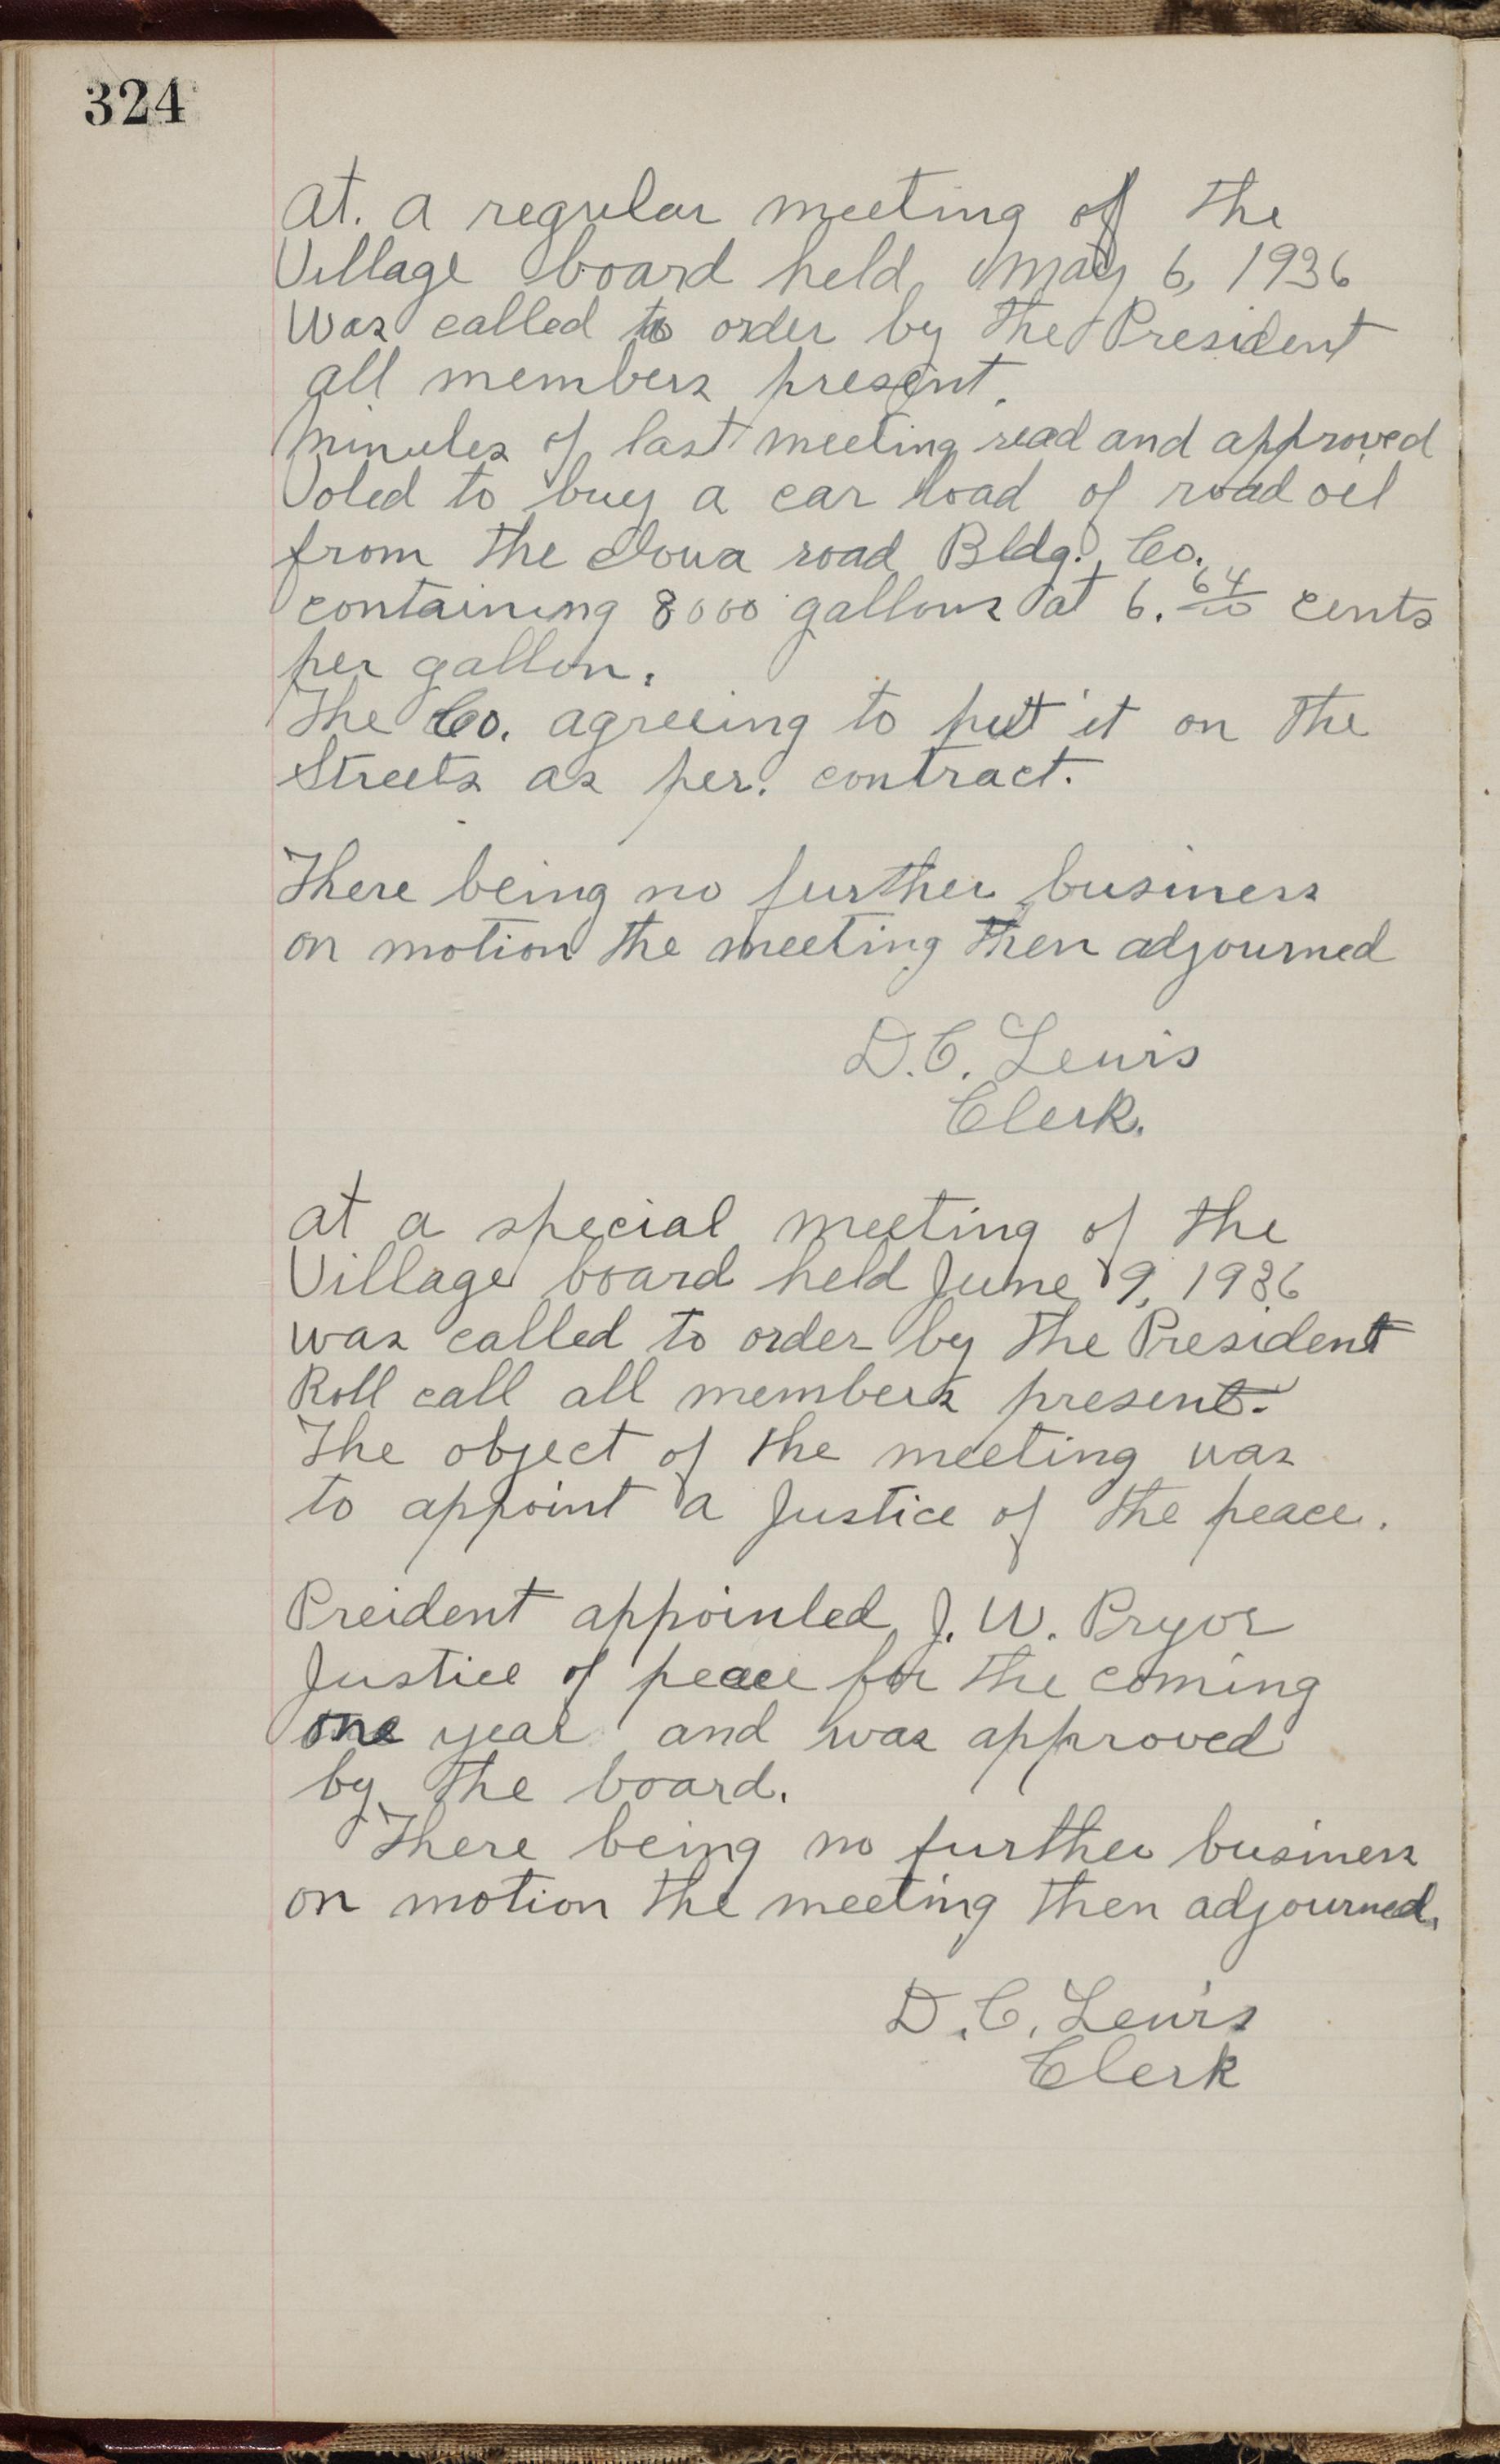 324
at. a regular meeting of the
Village board held May 6, 1936
Was called to order by the President
all members present.
Minutes of last meeting read and approved
Voted to buy a car load of road oil
from the Iowa road Bldg. Co.
containing 8000 gallons at 6. 64/10 cents
per gallon.
The Co. agreeing to put it on the
Streets as per. contract.
There being no further business
on motion the meeting then adjourned
D.C. Lewis
Clerk.
at a special meeting of the
Village board held June 9, 1936
was called to order by the President
Roll call all members present.
The object of the meeting was
to appoint a Justice of the peace.
Preident appointed J. W. Pryor
Justice of peace for the coming
one year and was approved
by the board.
There being no further business
on motion the meeting then adjourned.
D.C. Lewis
Clerk